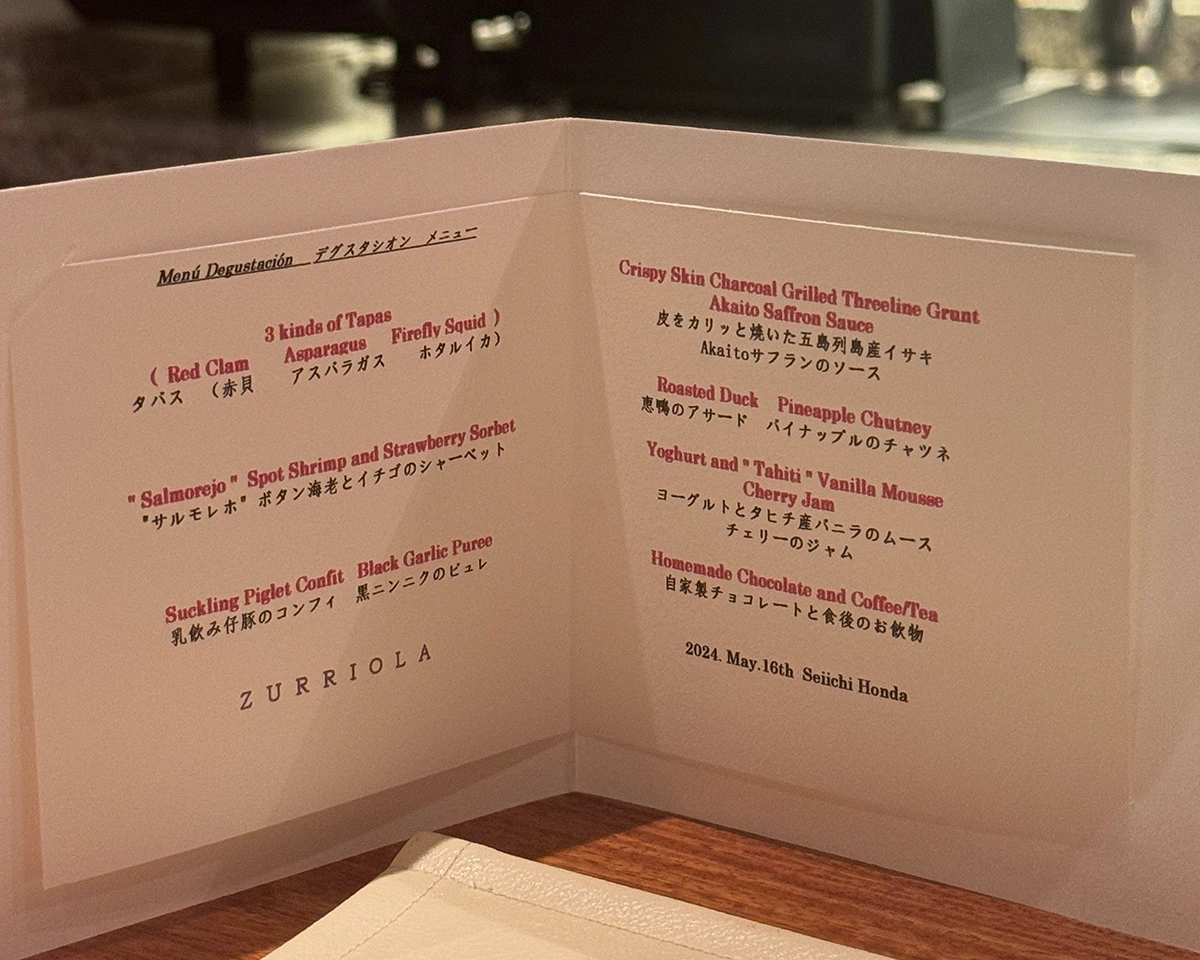 Menú Degustación デグスタシオン メニュー
3 kinds of Tapas
( Red Clam Asparagus Firefly Squid )
タパス (赤貝 アスパラガス ホタルイカ)
" Salmorejo " Spot Shrimp and Strawberry Sorbet
"サルモレホ" ボタン海老とイチゴのシャーベット
Suckling Piglet Confit Black Garlic Puree
乳飲み仔豚のコンフィ 黒ニンニクのピュレ
ZURRIOLA
Crispy Skin Charcoal Grilled Threeline Grunt
Akaito Saffron Sauce
皮をカリッと焼いた五島列島産イサキ
Akaitoサフランのソース
Roasted Duck Pineapple Chutney
恵鴨のアサード パイナップルのチャツネ
Yoghurt and " Tahiti " Vanilla Mousse
Cherry Jam
ヨーグルトとタヒチ産バニラのムース
チェリーのジャム
Homemade Chocolate and Coffee/Tea
自家製チョコレートと食後のお飲物
2024. May.16th Seiichi Honda